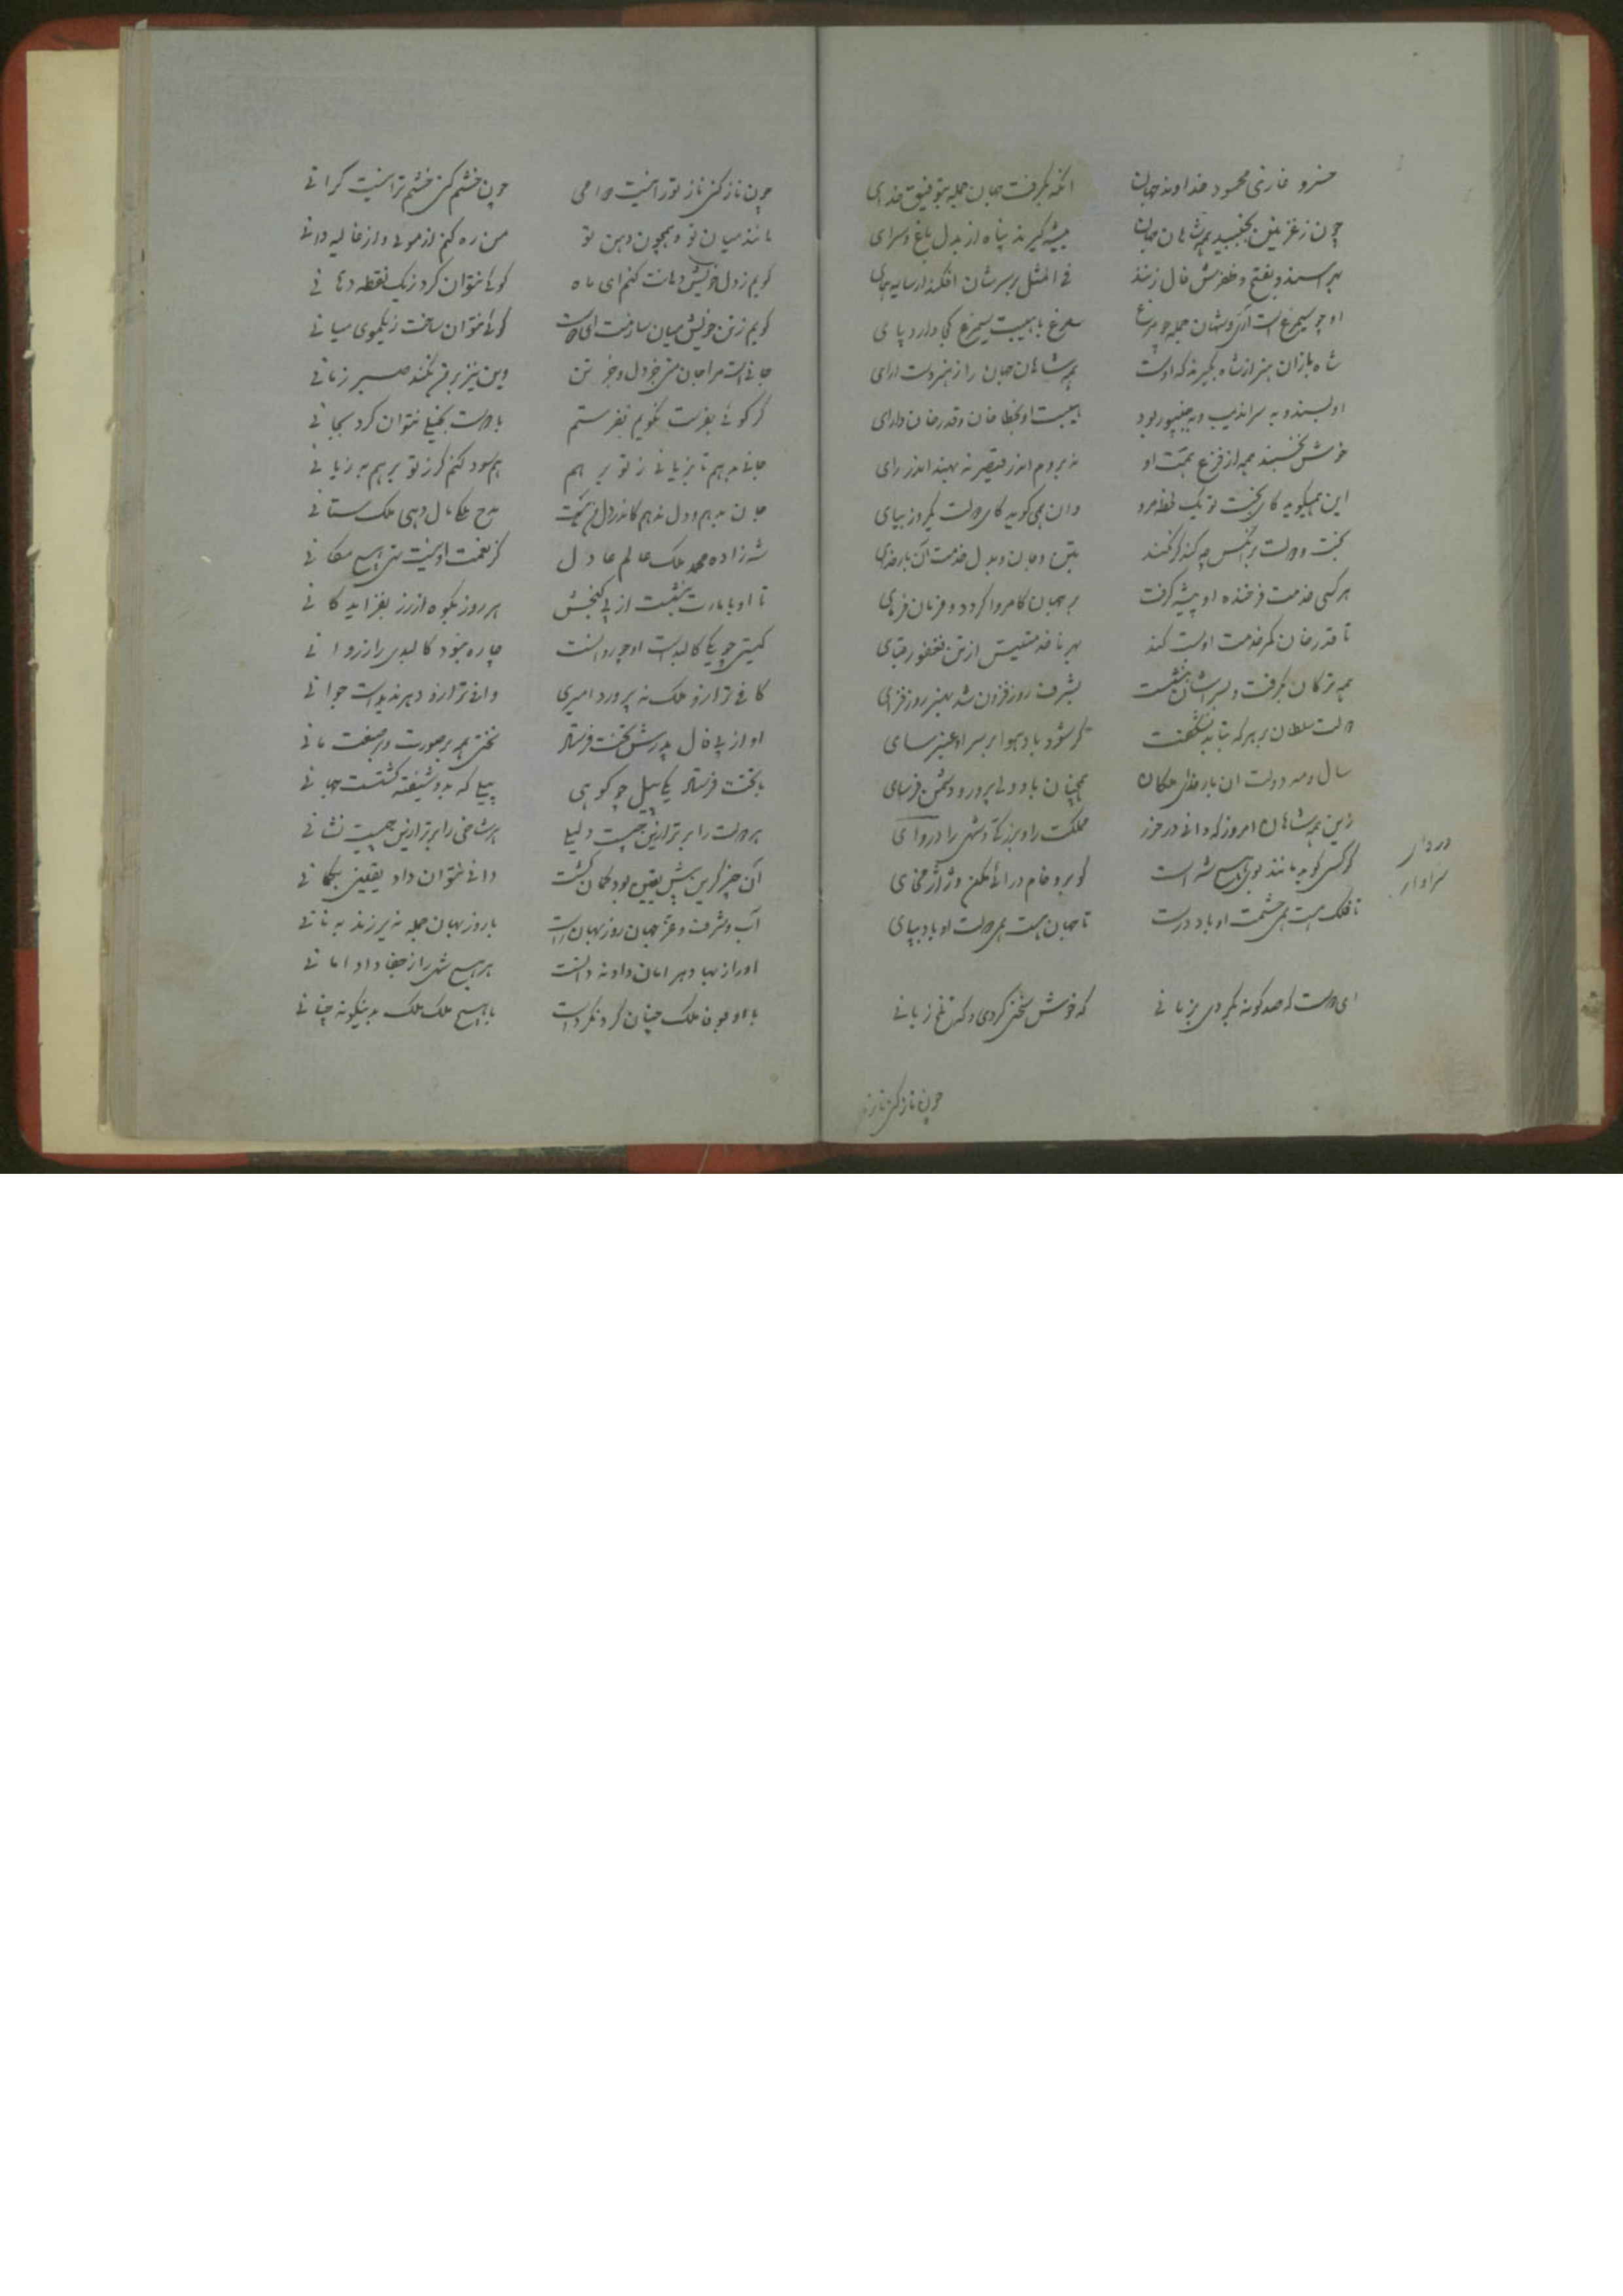 خسرو غازی محمود خداوند جهان آنکه بگرفت جهان جمله بتوفیق خدای
چون ز غزنین بجنبید همه شاهان جهان بیشه گیرند پناه از بدل باغ و سرای
بهراسند و بفتح و ظفرش فال زنند فی المثل بر سرشان افکند ار سایه همای
او چو سیمرغ است آری و شهان جمله چو مرغ مرغ با هیبت سیمرغ کجا دارد پای
شاه بازان هنر از شاه بگیرند که اوست همه شاهان جهان را ز هنر دست گرای
او بسند و به سراندیب و به جیپور بود هیبت او بخطا خان و قدرخان و ارای
خوش نخسبند همه از فزع همت او نه بروم اندر قیصر نه بهند اندر رای
این همیگوید کای بخت تو یک لحظه مرو وان همی گوید کای دولت یکروز بپای
بخت و دولت بر آنکس چه کند گر نکند بتن و جان و بدل خدمت آن بار خدای
هر کسی خدمت فرخنده او پیشه گرفت بر جهان کامروا گردد و فرمان فرمای
تا قدرخان کمر خدمت او بست کند
همه ترکان بگرفت و بسر ایشان بنشست بشرف روز فزون شد بهنر روز فزای
دولت سلطان بر هر که بتابد نه شگفت گر شود باد هوا بر سر او عنبر سای
سال و مه دولت آن بار خدای ملکان همچنان باد ولی پرور و دشمن فرسای
زین همه شاهان امروز که دانی در خز مملکت را و بزرگی و شهی را دروای
گر کسی گوید مانند تو هیچ شه است گو برو خام درائی مکن و ژاژ مخای
تا فلک هست همی حشمت او باد درست تا جهان هست همی دولت او باد بپای
ای دوست که صد گونه بگردی بزمانی که خوش سخنی کردی و که تلخ زبانی
چون ناز کنی ناز
چون ناز کنی ناز تو را نیست قوامی چون خشم کنی خشم ترا نیست کرانی
مانند میان تو و همچون دهن تو من ره کنم از موئی و از غالیه دانی
گویم ز دل خویش دهانت کنم ای ماه گوئی نتوان کرد ز یک نقطه دهانی
گویم ز تن خویش میان سازمت ای دوست گوئی نتوان ساخت ز یکموی میانی
جانیست مرا جان من جز دل و جز تن وین نیز بر من نکند صبر زمانی
گر گوئی بفرست نگویم نفرستم با دوست بخیلی نتوان کرد بجانی
جانی بدهم تا بزیانی ز تو برهم هم سود کنم گر ز تو برهم به زیانی
جان بدهم و دل ندهم کاندر دل من هست مدح ملکی مال دهی ملک ستانی
شه زاده محمد ملک عالم عادل کز نعمت او نیست تهی هیچ مکانی
تا او بامارت بنشست از پی گنجش هر روز بکوه از زر بفزاید کانی
گیتی چو یکی کالبد است او چو روانست چاره نبود کالبدی را ز روانی
کافی تر از او ملک نپرورد امیری وانی تر از او دهر ندید است جوانی
او از پی فال پدرش تخت فرستاد تختی همه بر صورت و بر صنعت مانی
با تخت فرستاد یکی پیل چو کوهی پیلی که بدو شیفته گشتست جهانی
بر دولت را برتر ازین چیست دلیلی هر شاخی را برتر ازین چیست نشانی
آن چیز کزین پیش یقین بود گمان گشت دانی نتوان داد یقینی بگمانی
آب و شرف و عز جهان روز بهان راست با روز بهان جمله نه برزند به نانی
او را ز بها دهر امان داد نه دانست بر هیچ شهی را ز جفا داد امانی
با او بوفا ملک چنان کرد نکرد است با هیچ ملک ملک بدینگونه چنانی